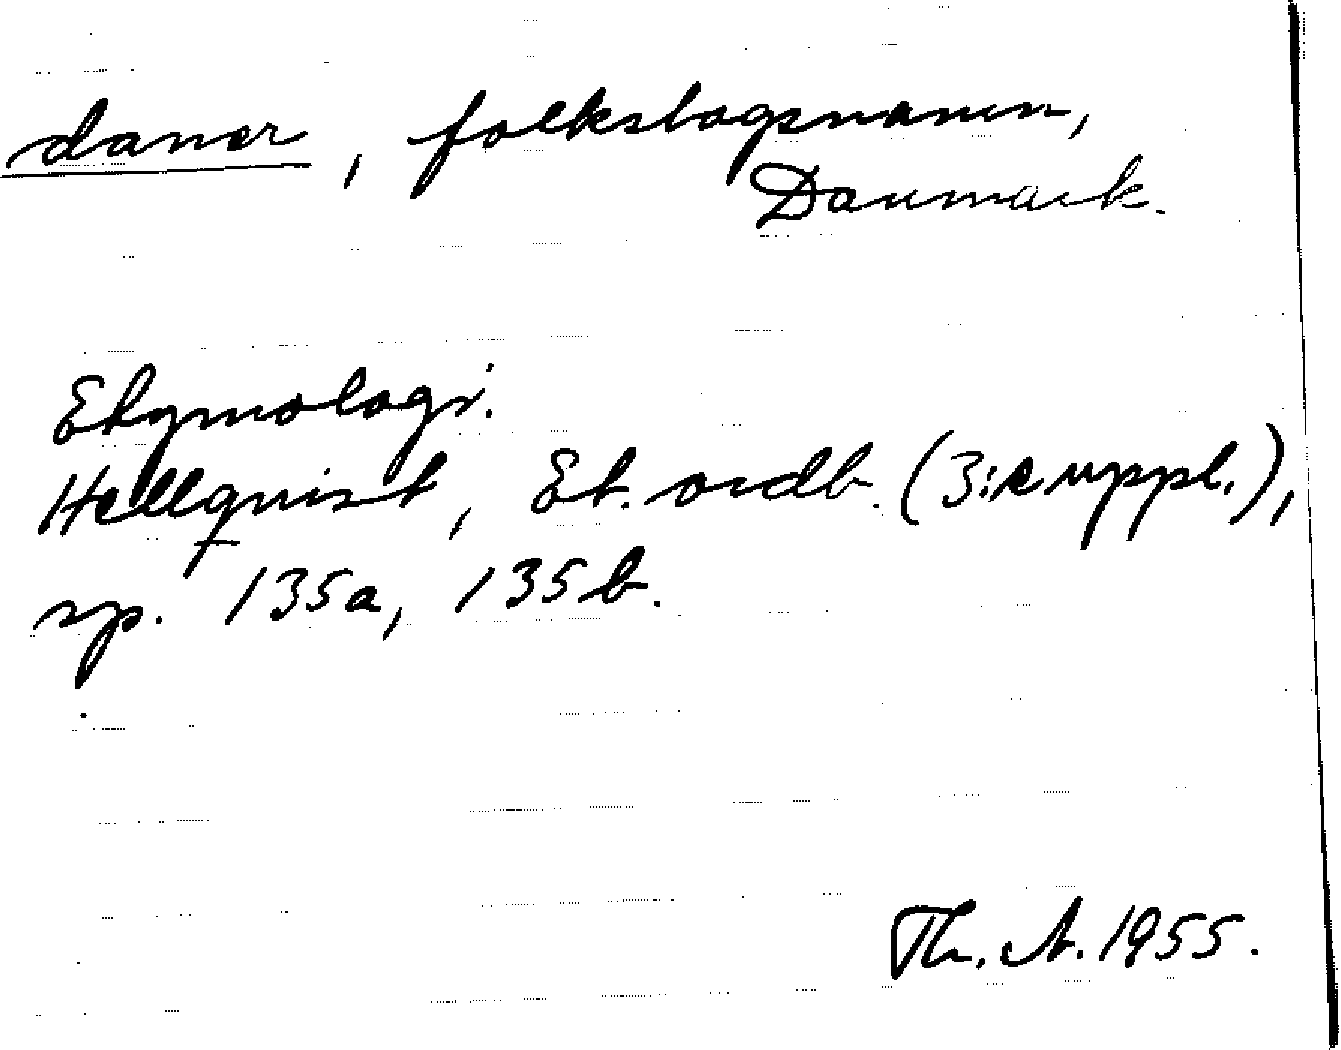 daner, folkslagsnamn,
Danmark.
Etymologi.
Hellquist, Et. ordb. (3:e uppl.),
sp. 135a, 135b.
Th. A. 1955.